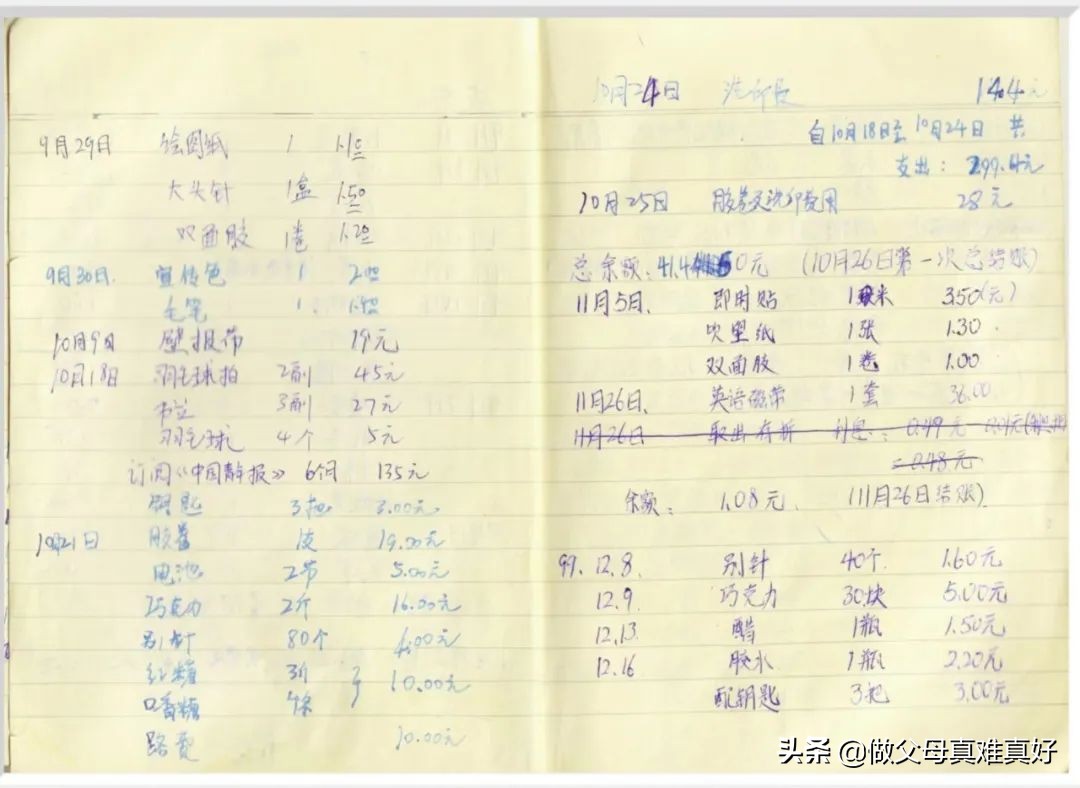 9月29日 绘图纸 1 1.10
大头针 1盒 1.50
双面胶 1卷 1.20
9月30日. 宣传色 1
毛笔 1
10月9日 壁报布 19元
10月18日 羽毛球拍 2副 45元
3副 27元
羽毛球 4个 5元
订阅《中国青年报》 6个月 135元
钥匙 3把 3.00元
10月21日 胶卷 1支 19.00元
电池 2节 5.00元
巧克力 2斤 16.00元
别针 80个 4.00元
红糖 3斤
口香糖 4条 } 10.00元
路费 10.00元
10月24日 洗印 14.4元
自10月18日至10月24日 共
支出: 299.4元
10月25日 胶卷及洗印费用 28元
总余额: (10月26日第一次总结账)
11月5日. 即时贴 1米 3.50(元)
吹塑纸 1张 1.30
双面胶 1卷 1.00
11月26日. 英语磁带 1套 36.00
11月26日 取出存折 利息: 0.49元
=0.48元
余额: 1.08元. (11月26日结账)
99. 12.8. 别针 40个. 1.60元
12.9. 巧克力 30块 5.00元
12.13. 醋 1瓶 1.50元
12.16 胶水 1瓶 2.20元
配钥匙 3把 3.00元
头条 @做父母真难真好